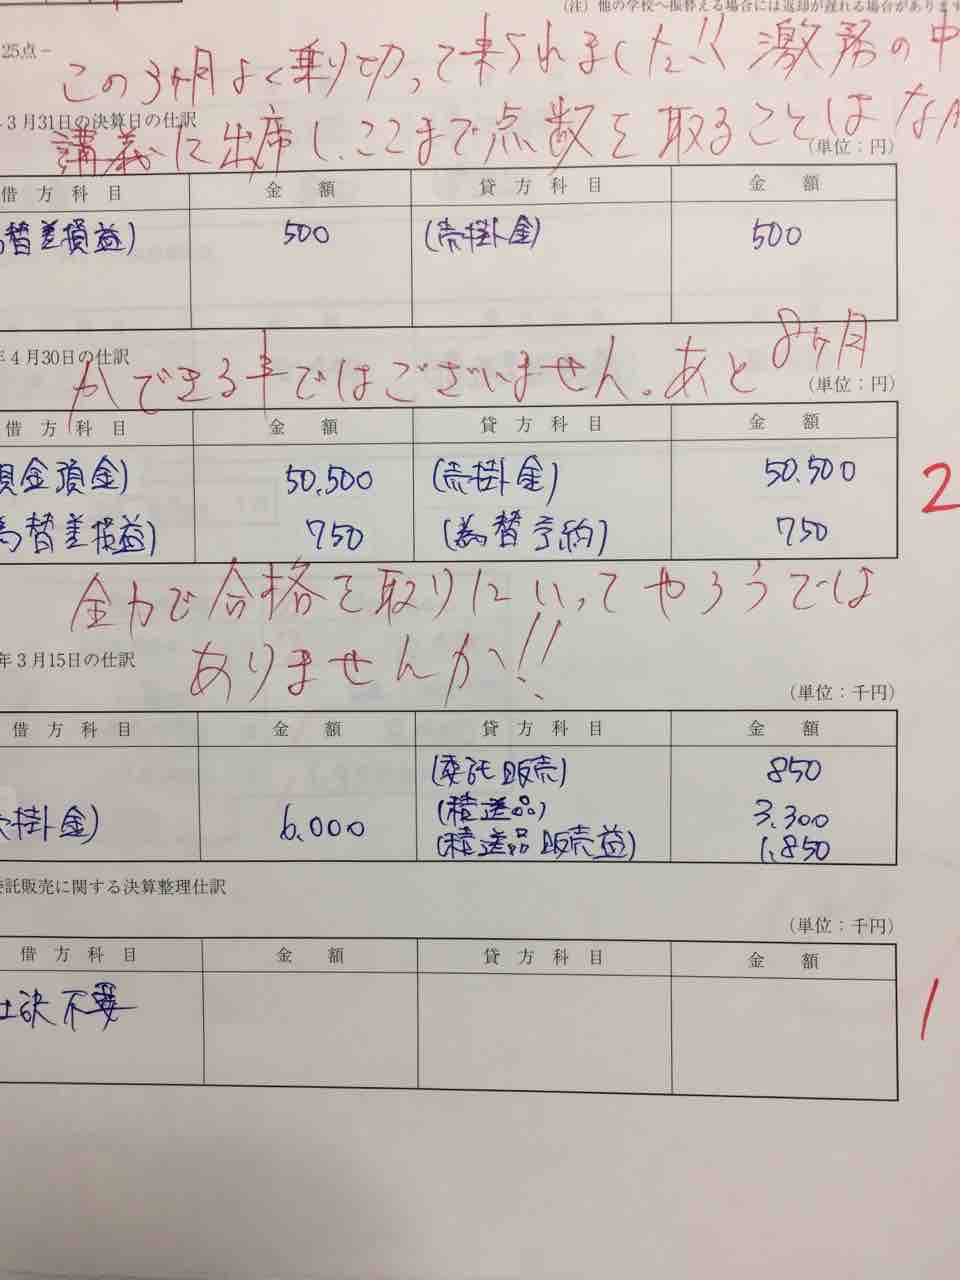 （注）他の学校へ振替える場合には返却が遅れる場合があります
25点－
この3ヶ月よく乗り切って来られました!! 激務の中
3月31日の決算日の仕訳
講義に出席し、ここまで点数を取ることはなか
（単位：円）
借方科目 金額 貸方科目 金額
替差損益) 500 (売掛金) 500
年4月30日の仕訳
かできる事ではございません。あと8ヶ月
（単位：円）
借方科目 金額 貸方科目 金額
現金預金) 50,500 (売掛金) 50,500
為替差損益) 750 (為替予約) 750
2
全力で合格を取りにいってやろうでは
年3月15日の仕訳
ありませんか!!
（単位：千円）
借方科目 金額 貸方科目 金額
(委託販売) 850
掛金) 6,000 (積送品) 3,300
(積送品販売益) 1,850
委託販売に関する決算整理仕訳
（単位：千円）
借方科目 金額 貸方科目 金額
仕訳不要
1